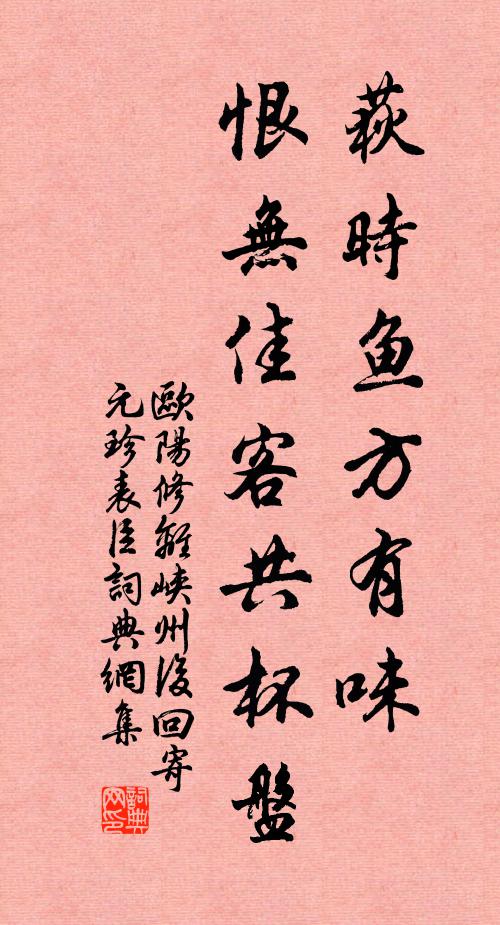 萩時魚方有味
恨無佳客共杯盤
歐陽修離峽州後回寄
元珍表臣詞典網集
詞典网印